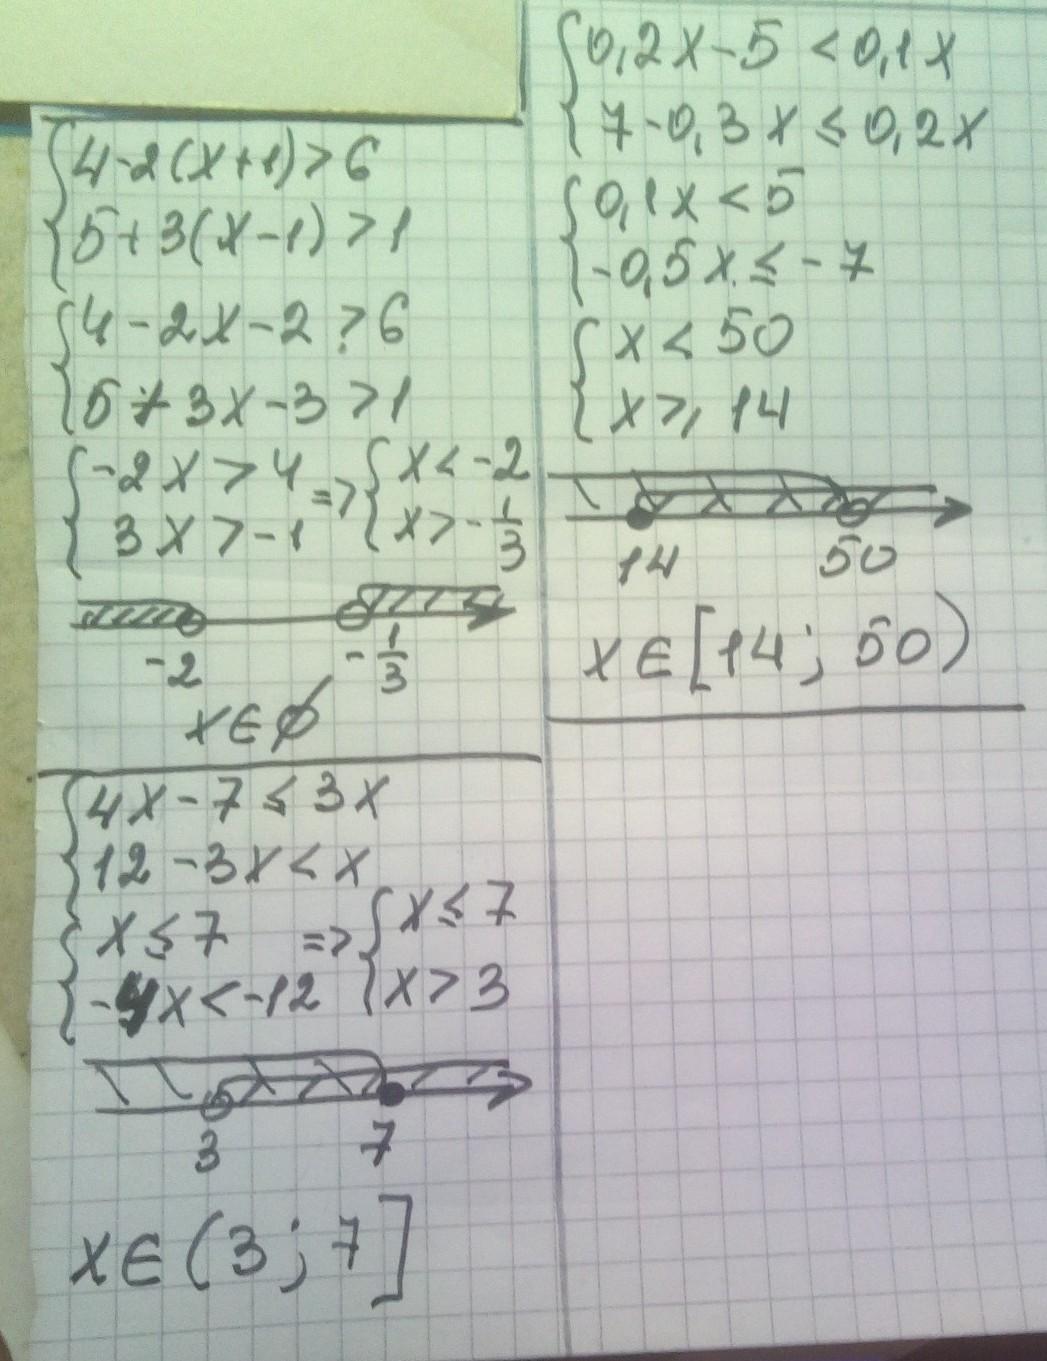 4-2(x+1)>6
5+3(x-1)>1
4-2x-2>6
5+3x-3>1
-2x>4 => x<-2
3x>-1 x>-1/3
-2 -1/3
x∈∅
4x-7≤3x
12-3x<x
x≤7 => x≤7
-4x<-12 x>3
3 7
x∈(3;7]
0,2x-5<0,1x
7-0,3x≤0,2x
0,1x<5
-0,5x≤-7
x<50
x≥14
14 50
x∈[14;50)